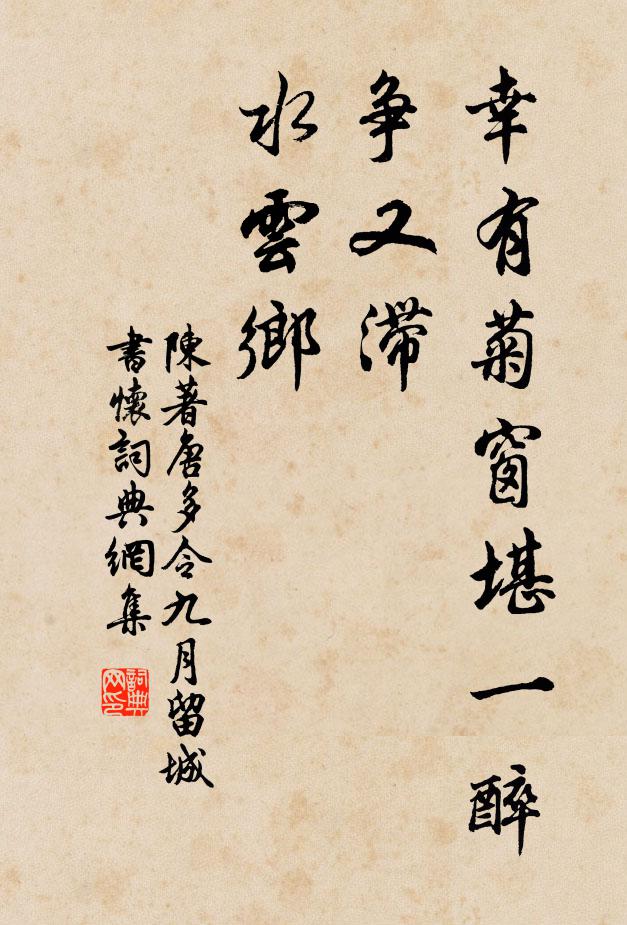 幸有菊窗堪一醉
争又滞
水雲鄉
陳著唐多令九月留城
書懷詞典網集
詞典网印